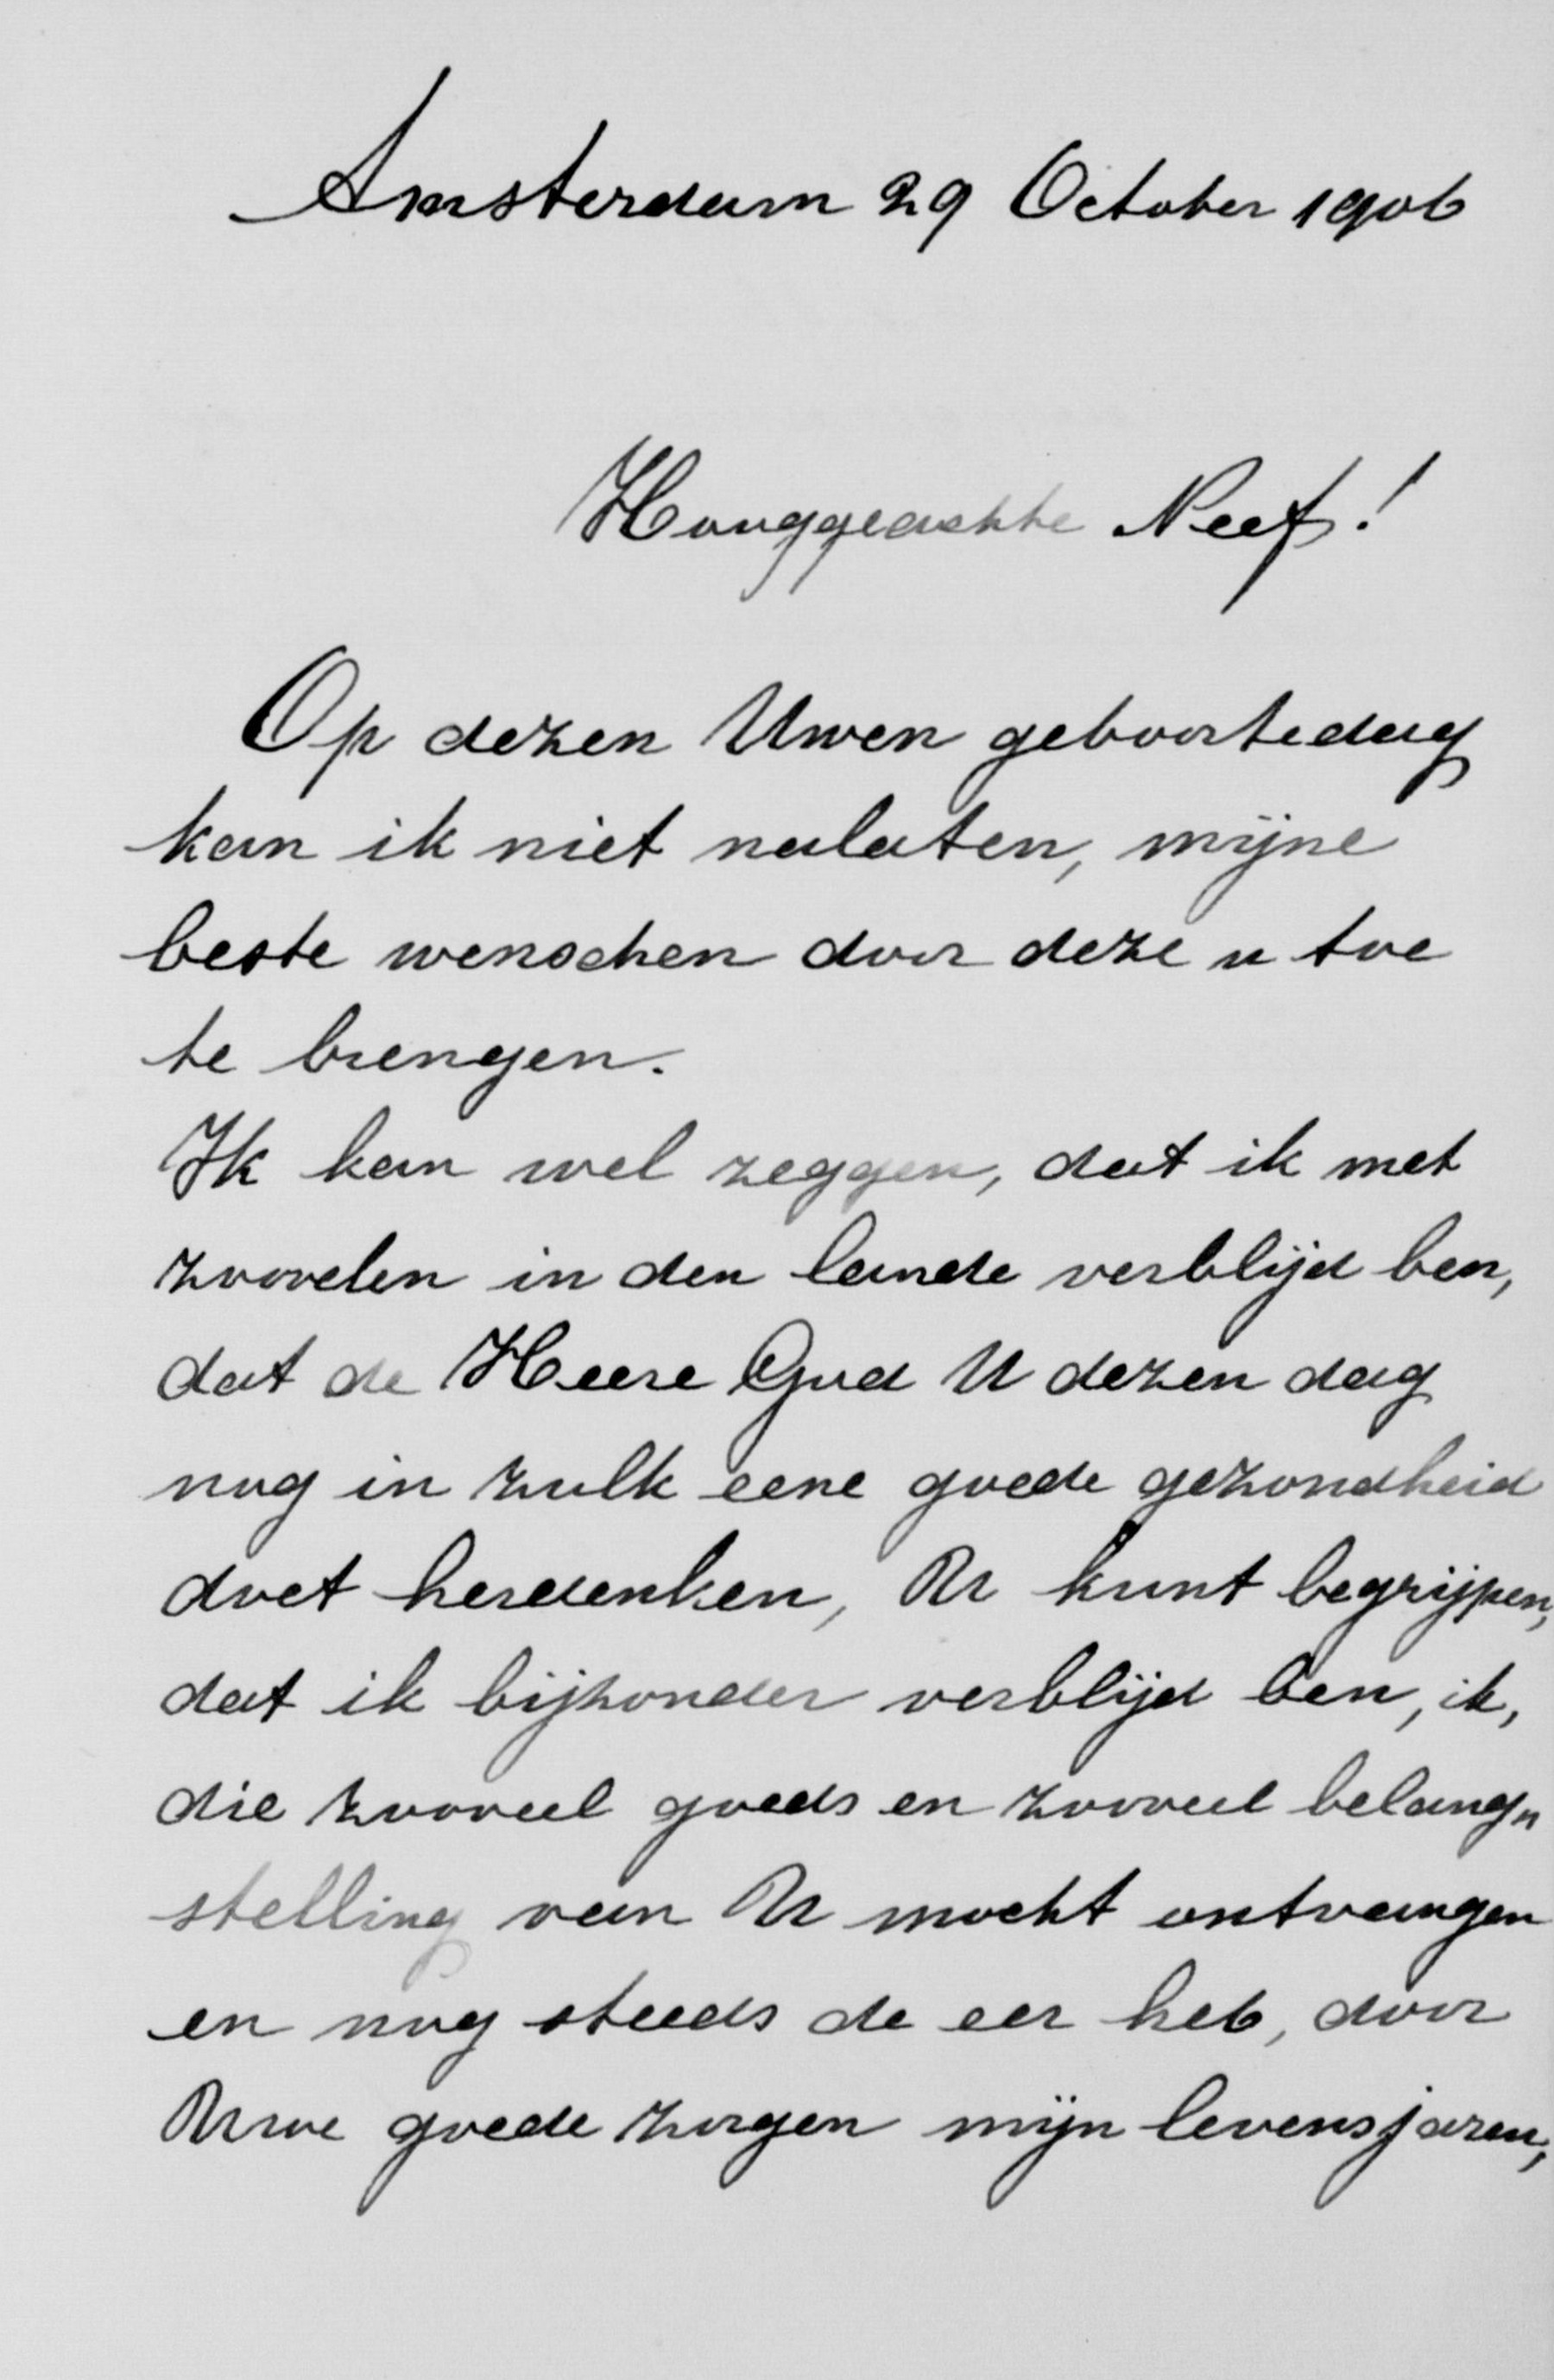 Amsterdam 29 October 1906
Hooggeachte Neef!
Op dezen Uwen geboortedag
kan ik niet nalaten, mijne
beste wenschen door deze u toe
te brengen.
Ik kan wel zeggen, dat ik met
zoovelen in den lande verblijd ben,
dat de Heere God U dezen dag
nog in zulk eene goede gezondheid
doet herdenken, U kunt begrijpen,
dat ik bijzonder verblijd ben, ik,
die zooveel goeds en zooveel belang„
stelling van U mocht ontvangen
en nog steeds de eer heb, door
Uwe goede zorgen mijn levensjaren,